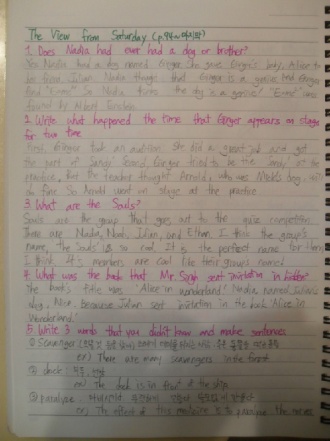 The View from Saturday (p.94~마지막)
1. Does Nadia had ever had a dog or brother?
Yes Nadia had a dog named Ginger. She gave Ginger's baby, Alice to
be Julian. Nadia thought that Ginger is a genius and Ginger
find "E=mc²" So Nadia thinks the dog is a genius! "E=mc²" was
found by Albert Einstein.
2. Write what happened the time that Ginger appears on stage
for two time
First, Ginger took an audition. She did a great job and got
the part of Sandy. Second Ginger tried to be the Sandy at the
practice, But the teacher thought Arnold, who was Michael's dog, will
do fine So Arnold went on stage at the practice
3. What are the Souls?
Souls are the group that goes out to the quiz competition.
There are Nadia, Noah, Julian, and Ethan. I think the group's
name, the Souls is so cool. It is the perfect name for them
I think. It's members are cool like their group's named
4. What was the book that Mr. Singh sent invitation in hidden?
The book's title was "Alice in wonderland." Nadia named Julian's
dog, Alice. Because Julian sent invitation in the book "Alice in
Wonderland."
5. Write 3 words that you didn't know and make sentences
① Scavenger
ex) There are many scavengers in the forest
② dock : 부두, 선창
ex) The dock is in front of the ship.
③ paralyse :
ex) The effect of this medicine is to paralyse the nerves